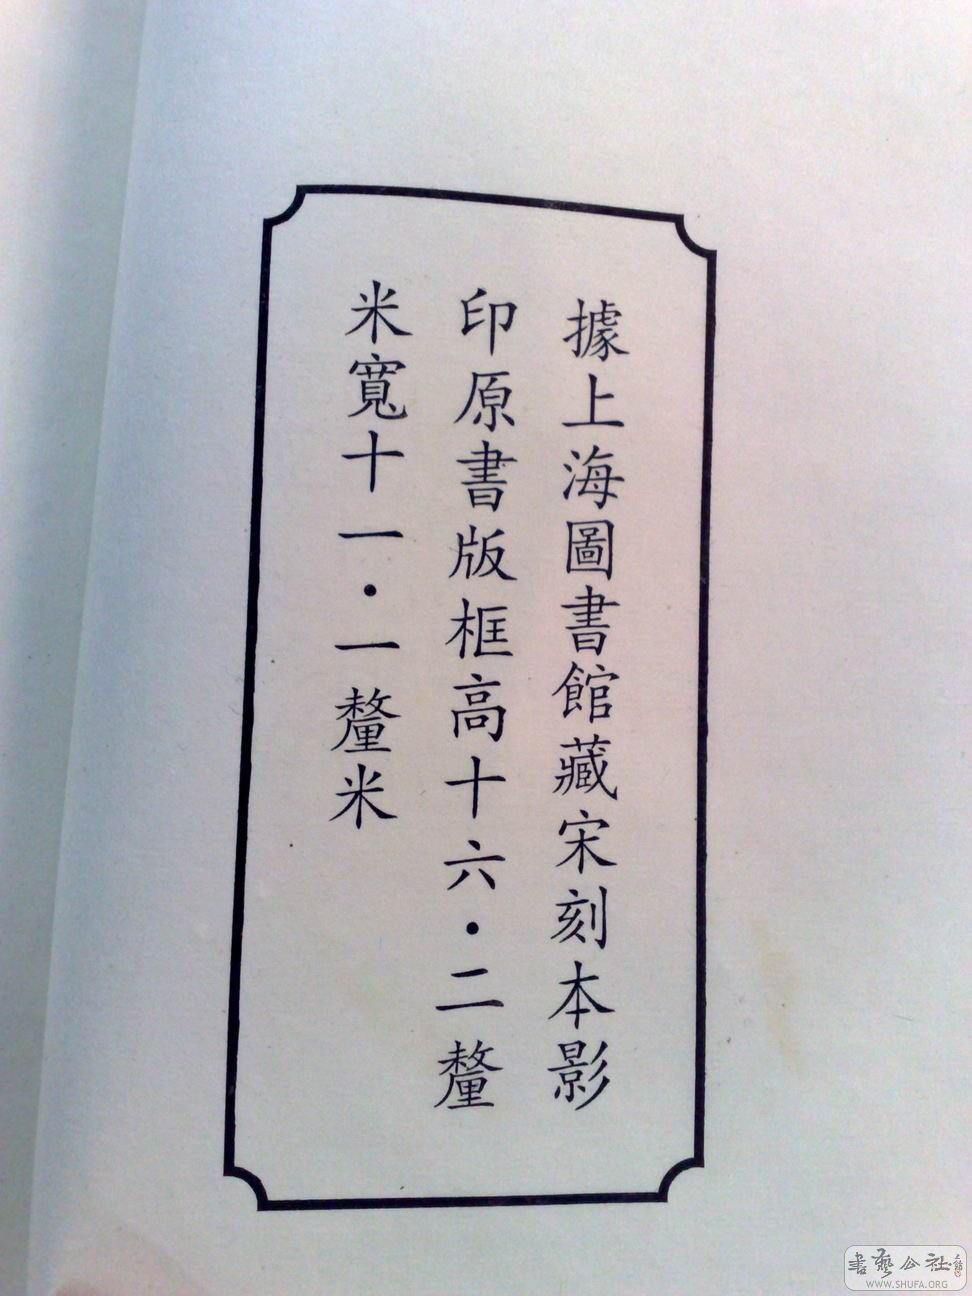 據上海圖書館藏宋刻本影
印原書版框高十六·二釐
米寬十一·一釐米
書藝公社
WWW.SHUFA.ORG